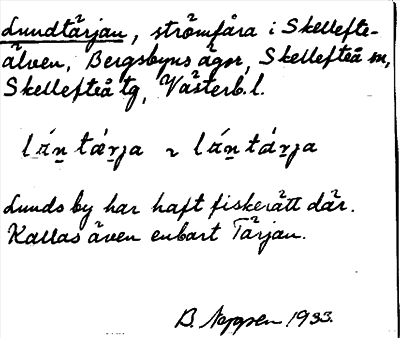 Lundtärjan, strömfåra i Skellefte-
älven, Bergsbyns ägor, Skellefteå sn,
Skellefteå tg, Västerb. l.
lá̱n tǽrja ~ lá̱n tárja
Lunds by har haft fiskerätt där.
Kallas även enbart Tärjan.
B. 1933.